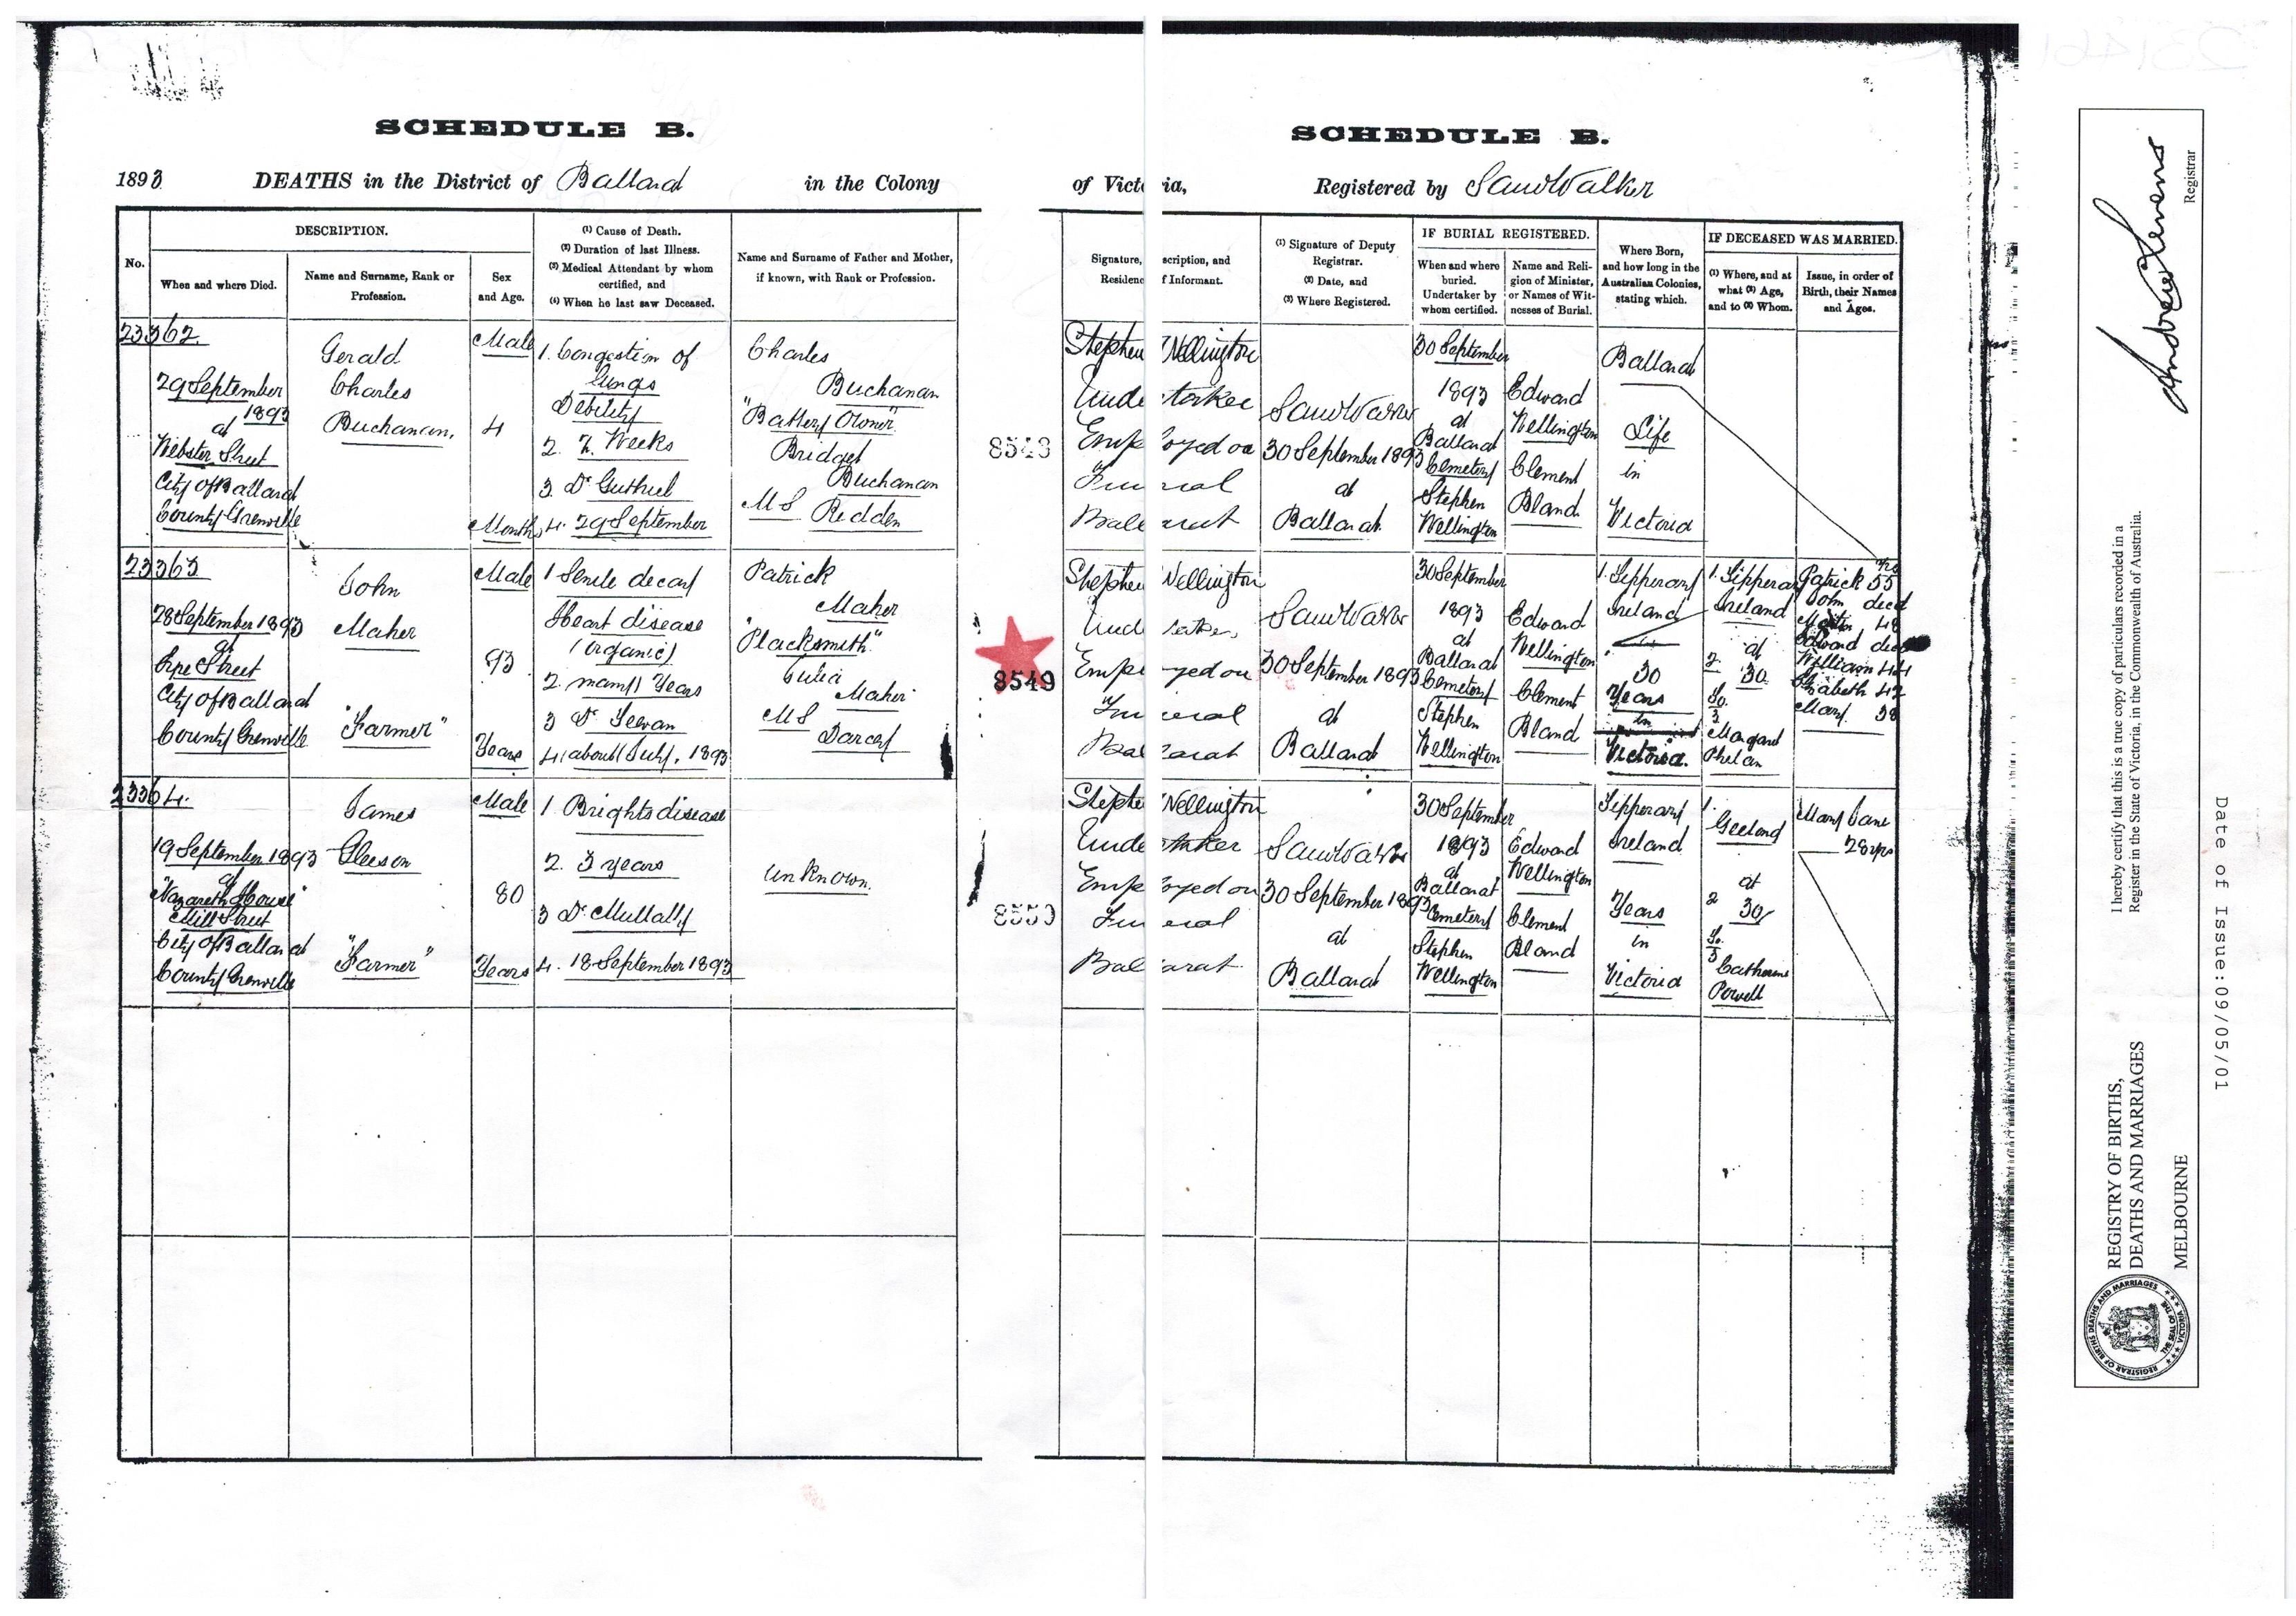 SCHEDULE B.
SCHEDULE B.
1893 DEATHS in the District of Ballarat in the Colony of Victoria, Registered by
No.
DESCRIPTION.
When and where Died.
Name and Surname, Rank or
Profession.
Sex
and Age.
(1) Cause of Death.
(2) Duration of last Illness.
(3) Medical Attendant by whom
certified, and
(4) When he last saw Deceased.
Name and Surname of Father and Mother,
if known, with Rank or Profession.
Signature, scription, and
Residenc f Informant.
(1) Signature of Deputy
Registrar.
(2) Date, and
(3) Where Registered.
IF BURIAL REGISTERED.
When and where
buried.
Undertaker by
whom certified.
Name and Reli-
gion of Minister,
or Names of Wit-
nesses of Burial.
Where Born,
and how long in the
Australian Colonies,
stating which.
IF DECEASED WAS MARRIED.
(1) Where, and at
what (2) Age,
and to (3) Whom.
Issue, in order of
Birth, their Names
and Ages.
23362
29 September
1893
at
Webster Street
City of Ballarat
County Grenville
Gerald
Charles
Buchanan,
Male
4
Months
1. Congestion of
lungs
Debility
2. 7. Weeks
3. Dr
4. 29 September
Charles
Buchanan
"Battery Owner"
Bridget
Buchanan
MS Redden
8548
Stephen Wellington
Undertaker
Employed on
Funeral
Ballarat
30 September 1893
at
Ballarat
30 September
1893
at
Ballarat
Cemetery
Stephen
Wellington
Edward
Wellington
Clement
Bland
Ballarat
Life
in
Victoria
23363
28 September 1893
at
Street
City of Ballarat
County Grenville
John
Maher
"Farmer"
Male
93
Years
1 Senile decay
Heart disease
(organic)
2. many Years
3 Dr
4. about July, 1893
Patrick
Maher
"Blacksmith"
Julia
Maher
MS
Darcey
8549
Stephen Wellington
Undertaker,
Employed on
Funeral
Ballarat
30 September 1893
at
Ballarat
30 September
1893
at
Ballarat
Cemetery
Stephen
Wellington
Edward
Wellington
Clement
Bland
1. Tipperary
Ireland
30
Years
in
Victoria.
1. Tipperary
Ireland
at
2. 30
To
3
Margaret
Phelan
Patrick 55
John decd
Martin 48
Edward decd
William 44
Elizabeth 42
Mary 38
23364.
19 September 1893
at
"Nazareth House"
Mill Street
City of Ballarat
County Grenville
James
Gleeson
"Farmer"
Male
80
Years
1 Brights disease
2. 3 years
3 Dr Mullally
4. 18 September 1893
unknown.
8550
Stephen Wellington
Undertaker
Employed on
Funeral
Ballarat
30 September 1893
at
Ballarat
30 September
1893
at
Ballarat
Cemetery
Stephen
Wellington
Edward
Wellington
Clement
Bland
Tipperary
Ireland
Years
in
Victoria
1.
Geelong
at
2 30
To.
3
Catherine
Powell
Mary Jane
28 yrs
REGISTRY OF BIRTHS,
DEATHS AND MARRIAGES
MELBOURNE
I hereby certify that this is a true copy of particulars recorded in a
Register in the State of Victoria, in the Commonwealth of Australia.
Registrar
Date of Issue:09/05/01